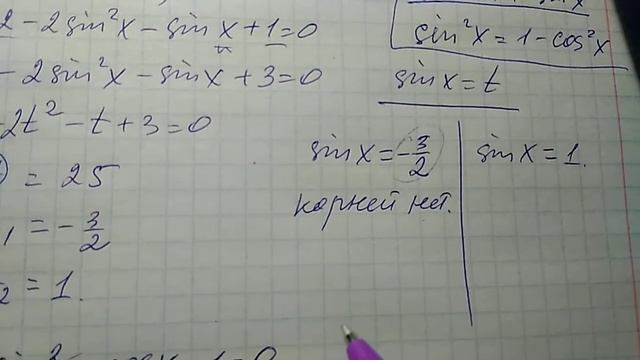 2 - 2sin²x - sin x + 1 = 0
- 2sin²x - sinx + 3 = 0
-2t² - t + 3 = 0
= 25
1 = - 3/2
2 = 1.
sin²x = 1 - cos²x
sinx = t
sinx = - 3/2
корней нет.
sinx = 1.